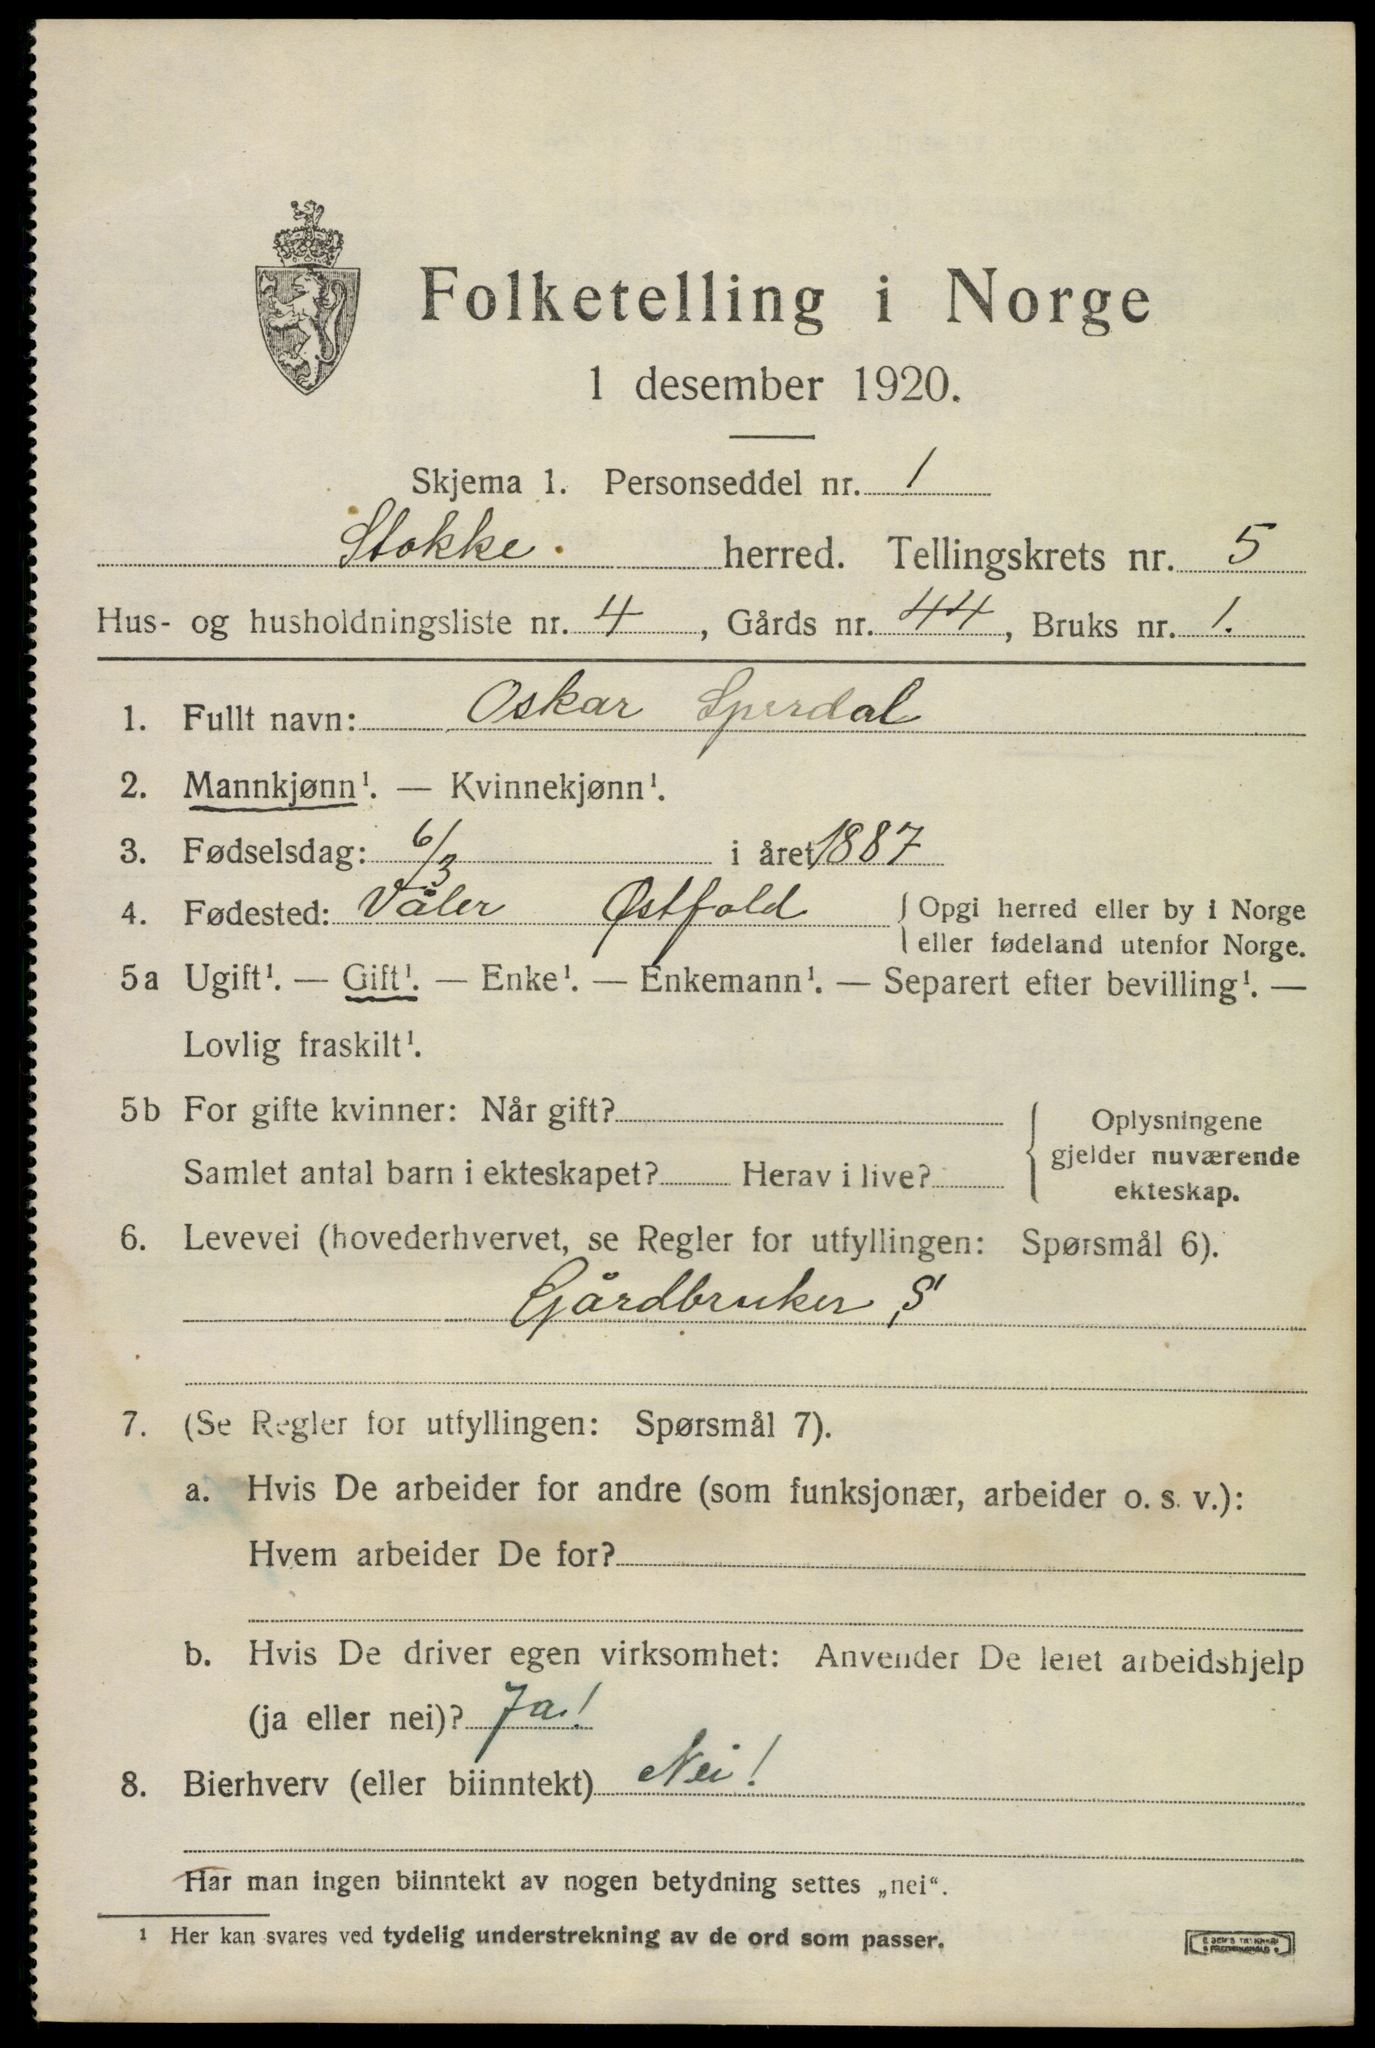 Folketelling i Norge
1 desember 1920.
Skjema 1. Personseddel nr. 1
Stokke. herred. Tellingskrets nr. 5
Hus- og husholdningsliste nr. 4, Gårds nr. 44, Bruks nr. 1.
1. Fullt navn: Oskar Sperdal
2. Mannkjønn¹. — Kvinnekjønn¹.
3. Fødselsdag: 6/3 i året 1887
4. Fødested: Våler Østfold { Opgi herred eller by i Norge
eller fødeland utenfor Norge.
5a Ugift¹. — Gift¹. — Enke¹. — Enkemann¹. — Separert efter bevilling¹. —
Lovlig fraskilt¹.
5b For gifte kvinner: Når gift?
Samlet antal barn i ekteskapet? Herav i live?
{ Oplysningene
gjelder nuværende
ekteskap.
6. Levevei (hovederhvervet, se Regler for utfyllingen: Spørsmål 6).
Gårdbruker, S
7. (Se Regler for utfyllingen: Spørsmål 7).
a. Hvis De arbeider for andre (som funksjonær, arbeider o. s. v.):
Hvem arbeider De for?
b. Hvis De driver egen virksomhet: Anvender De leiet arbeidshjelp
(ja eller nei)? Ja!
8. Bierhverv (eller biinntekt) Nei!
Har man ingen biinntekt av nogen betydning settes „nei“.
¹ Her kan svares ved tydelig understrekning av de ord som passer.